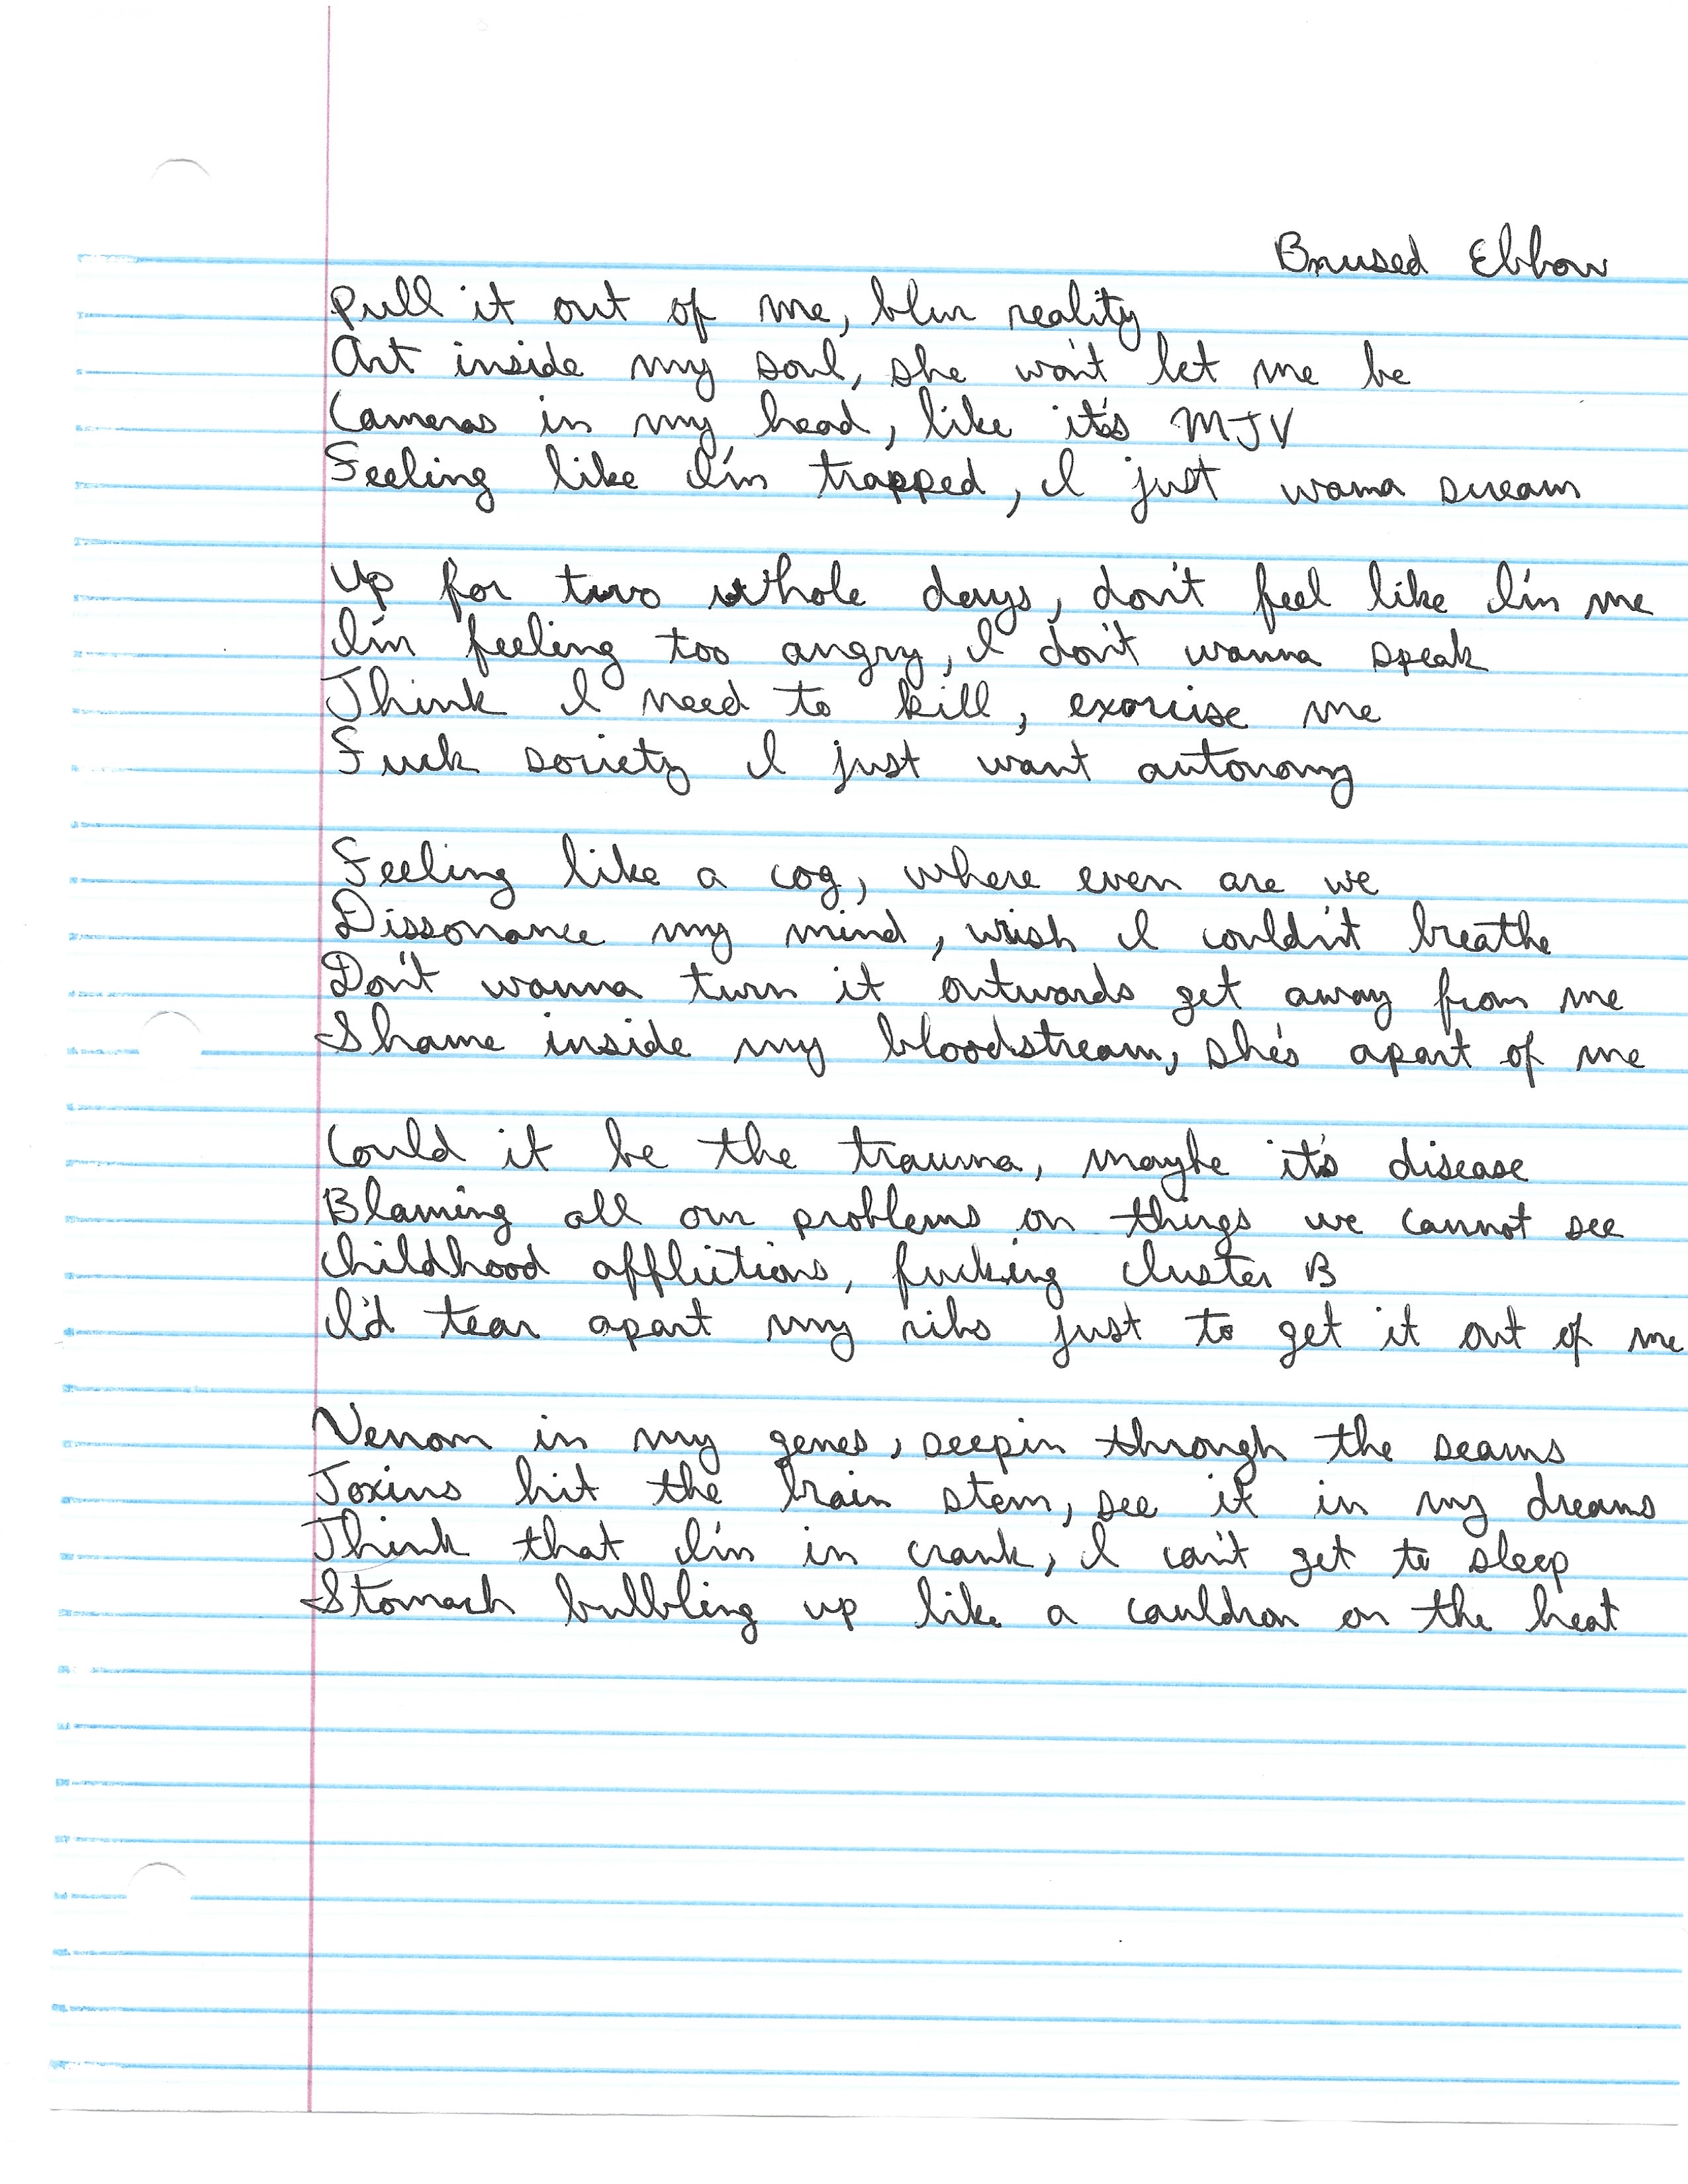 Bruised Elbow
Pull it out of me, blur reality
Art inside my soul, she won't let me be
Cameras in my head, like it's MTV
Feeling like I'm trapped, I just wanna scream
Up for two whole days, don't feel like I'm me
I'm feeling too angry, I don't wanna speak
Think I need to kill, exorcise me
Fuck society I just want autonomy
Feeling like a cog, where even are we
Dissonance my mind, wish I couldn't breathe
Don't wanna turn it outwards get away from me
Shame inside my bloodstream, she's apart of me
Could it be the trauma, maybe it's disease
Blaming all our problems on things we cannot see
Childhood afflictions, fucking cluster B
I'd tear apart my ribs just to get it out of me
Venom in my genes, seepin through the seams
Toxins hit the brain stem, see it in my dreams
Think that I'm in crank, I can't get to sleep
Stomach bubbling up like a cauldron on the heat